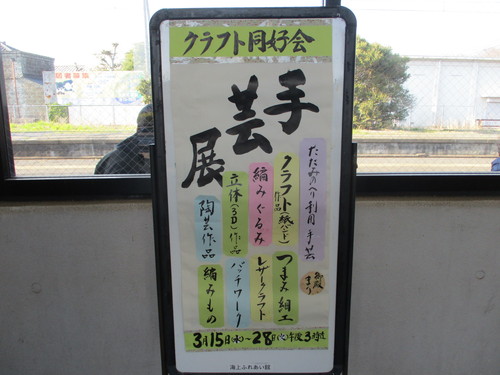 クラフト同好会
手芸展
たたみのヘリ利用手芸
クラフト(紙バンド)作品
編みぐるみ
立体(3D)作品
陶芸作品
御殿まり
つまみ細工
レザークラフト
パッチワーク
編みもの
3月15日(水)~28日(火)午後3時迄
海上ふれあい館